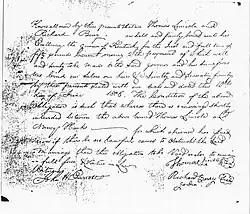 Know all men by these presents that we Thomas Lincoln and
Richard Berry are held and firmly bound unto his
Excellency the Governor of Kentucky for the Just and full sum of
Fifty pounds the payment of which well
and truly to be made to the said governor and his successors
we bind our selves our heirs &c Jointly and severally firmly
by these presents sealed with our seals and dated this 10th
day of June 1806. The Condition of the above
obligation is such that whereas there is a marriage shortly
intended between the above bound Thomas Lincoln and
Nancy Hanks for which a license has
issued now if there be no lawful cause to obstruct the said
marriage then this obligation to be void or else to remain
in full force & virtue in law
Thomas Lincoln
Richard Berry